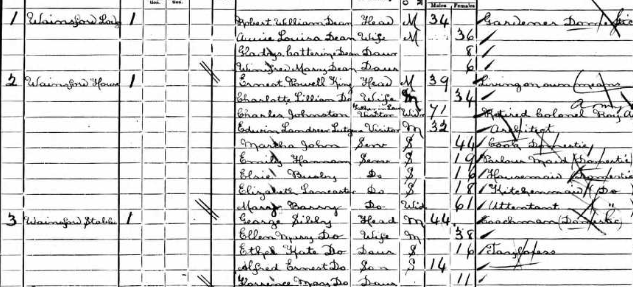 Males Females
1 Wainsford Lodge 1 Robert William Dean Head M 34 Gardener Domestic
Annie Louisa Dean Wife M 36
Gladys Catherine Dean Daur 8
Winifred Mary Dean Daur 6
2 Wainsford House 1 Ernest Powell King Head M 39 Living on own means
Charlotte Lillian Do Wife M 34
Charles Johnston Visitor Wid 71 Retired Colonel
Edwin Landseer Visitor M 32 Architect
Martha John Serv S 44 Cook Domestic
Emily Hannam Serv S 19 Parlour Maid (Domestic)
Elsie Do S 16 Housemaid (Domestic)
Elizabeth Lancaster Do S 18 Kitchenmaid (Do)
Mary Barry Do Wid 61 Attendant
3 Wainsford Stable 1 George Sibley Head M 44 Coachman (Domestic)
Ellen Mary Do Wife M 38
Ethel Kate Do Daur S 16
Alfred Ernest Do Son S 14
Florence Mary Do Daur 11